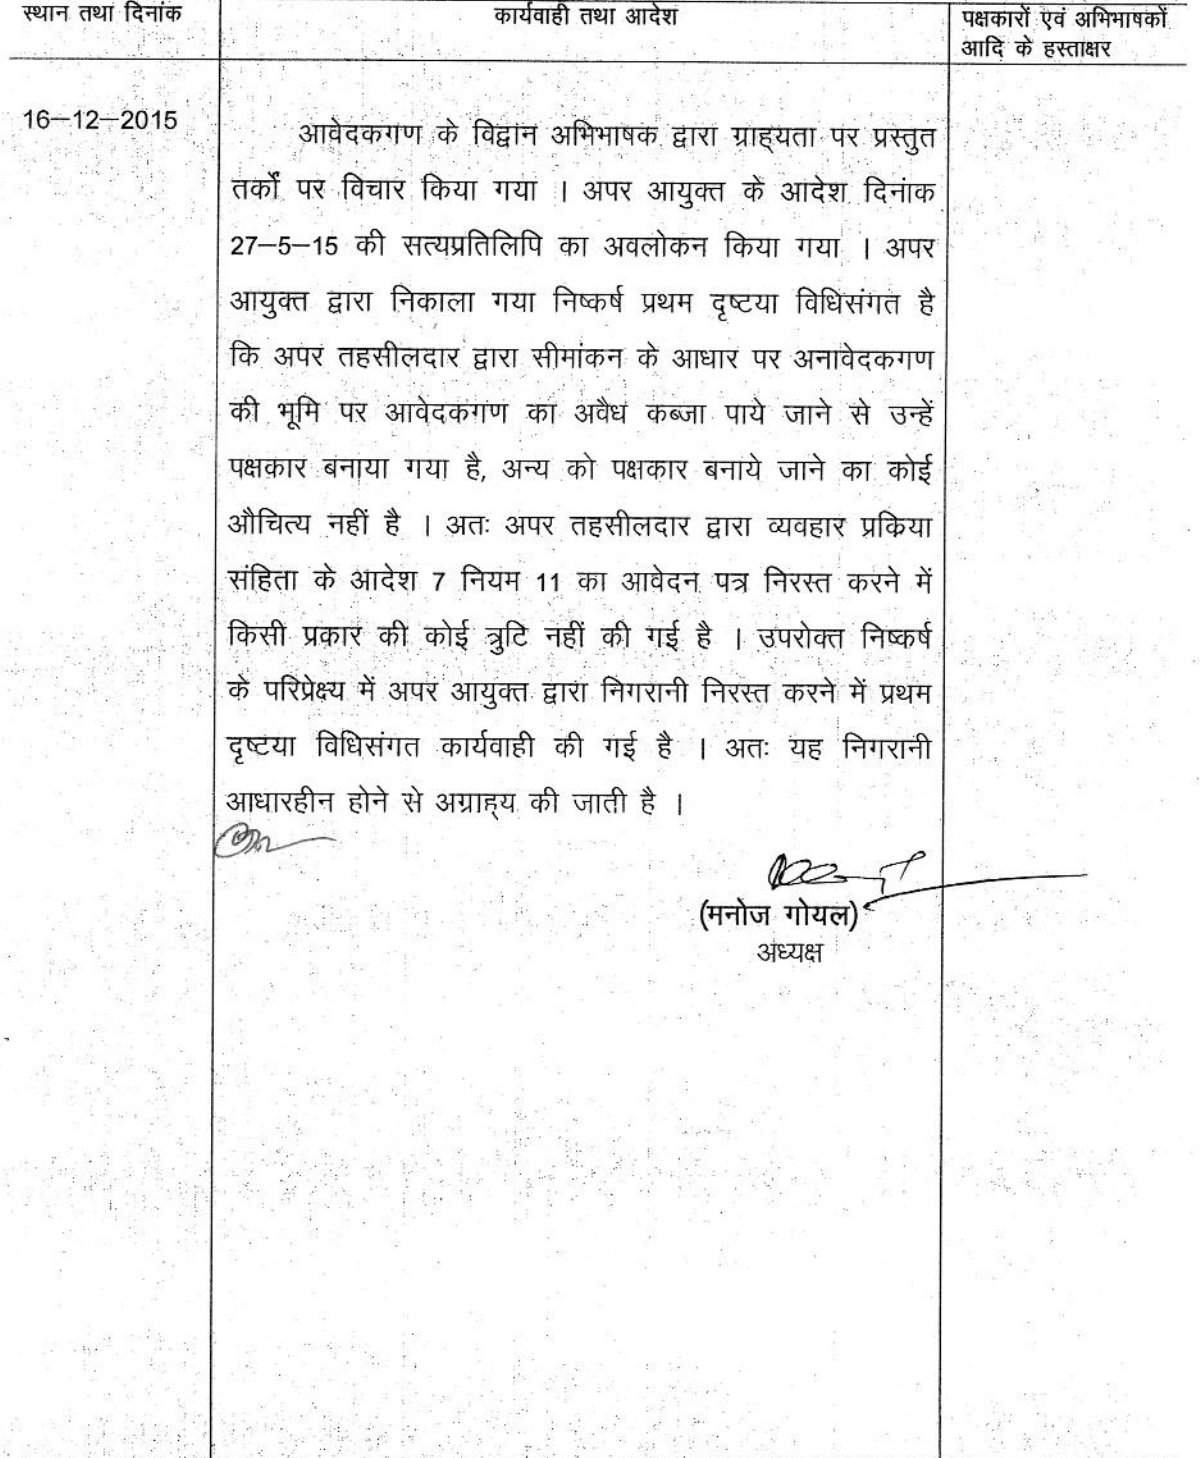 स्थान तथा दिनांक
कार्यवाही तथा आदेश
पक्षकारों एवं अभिभाषकों
आदि के हस्ताक्षर
16–12–2015
आवेदकगण के विद्वान अभिभाषक द्वारा ग्राह्यता पर प्रस्तुत
तर्कों पर विचार किया गया । अपर आयुक्त के आदेश दिनांक
27–5–15 की सत्यप्रतिलिपि का अवलोकन किया गया । अपर
आयुक्त द्वारा निकाला गया निष्कर्ष प्रथम दृष्टया विधिसंगत है
कि अपर तहसीलदार द्वारा सीमांकन के आधार पर अनावेदकगण
की भूमि पर आवेदकगण का अवैध कब्जा पाये जाने से उन्हें
पक्षकार बनाया गया है, अन्य को पक्षकार बनाये जाने का कोई
औचित्य नहीं है । अतः अपर तहसीलदार द्वारा व्यवहार प्रकिया
संहिता के आदेश 7 नियम 11 का आवेदन पत्र निरस्त करने में
किसी प्रकार की कोई त्रुटि नहीं की गई है । उपरोक्त निष्कर्ष
के परिप्रेक्ष्य में अपर आयुक्त द्वारा निगरानी निरस्त करने में प्रथम
दृष्टया विधिसंगत कार्यवाही की गई है । अतः यह निगरानी
आधारहीन होने से अग्राह्य की जाती है ।
(मनोज गोयल)
अध्यक्ष